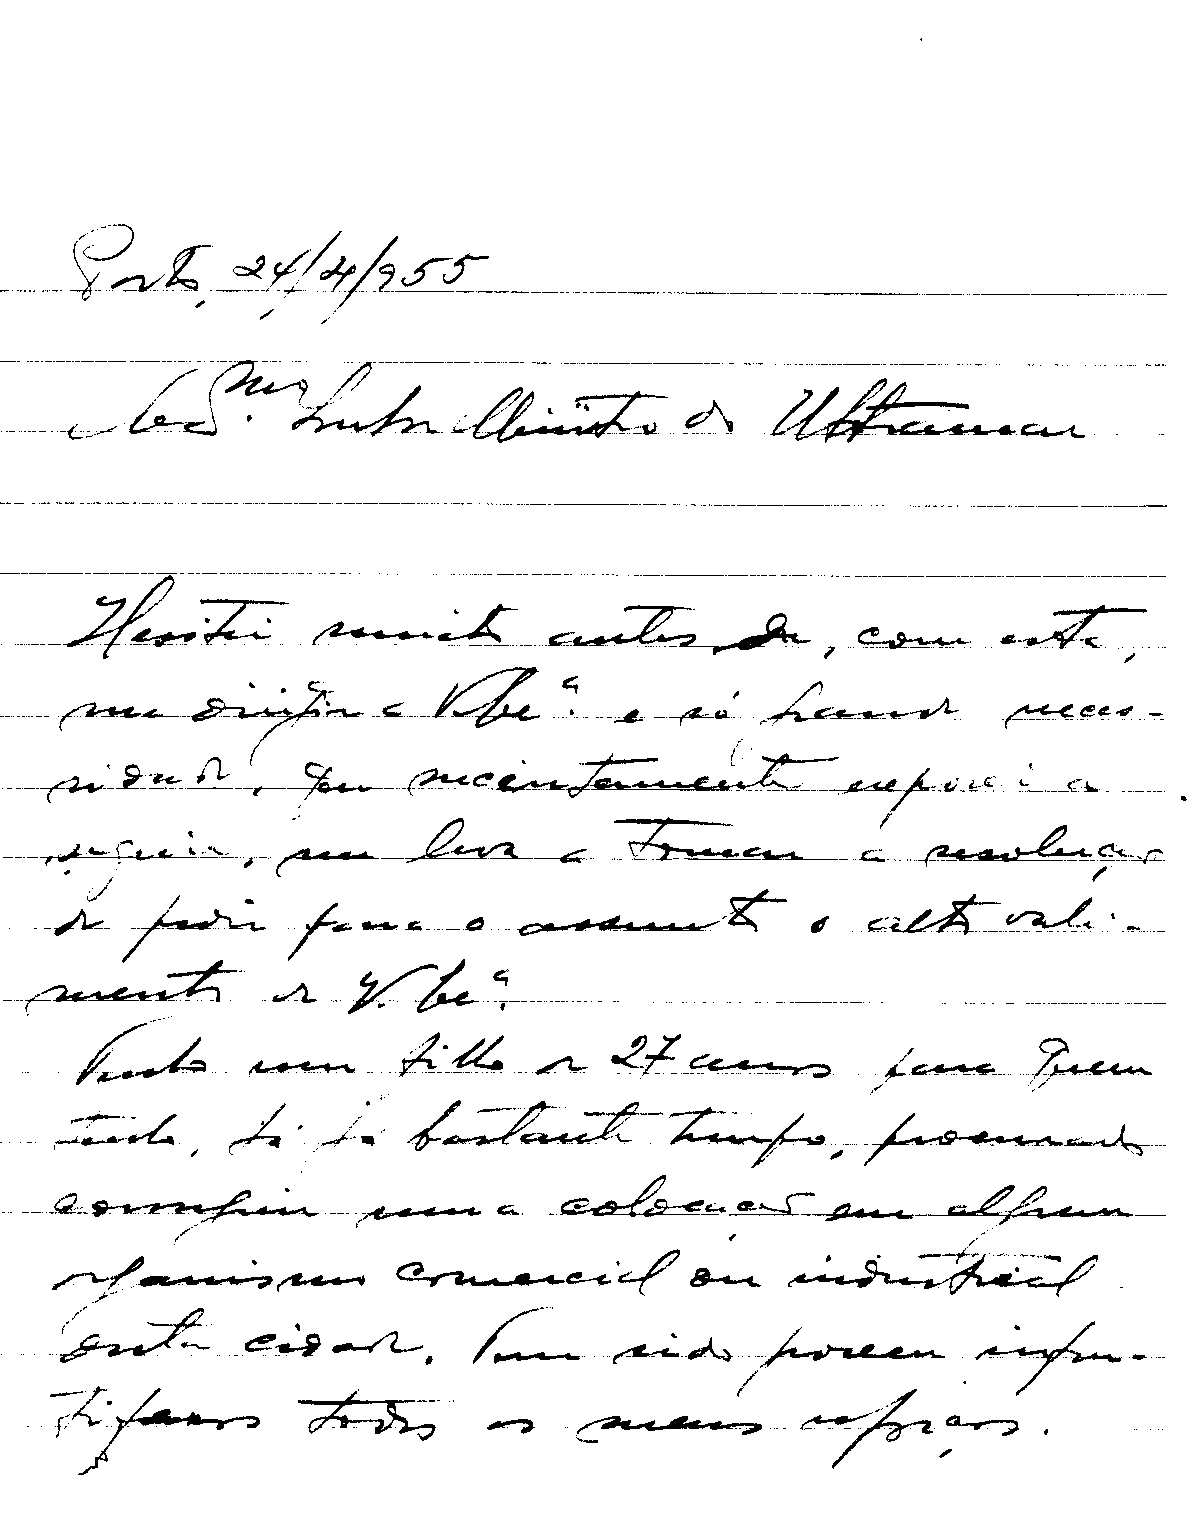 Porto, 24/4/955
Exmo. Senhor Ministro do Ultramar
Hesitei muito antes de, com esta,
me dirigir a V. Exª. e só grande neces-
sidade, que sucintamente exporei a
seguir, me leva a tomar a resolução
de pedir para o assunto o alto vali-
mento de V. Exª.
Tenho um filho de 27 anos para quem
tenho, há já bastante tempo, procurado
conseguir uma colocação em algum
organismo comercial ou industrial
desta cidade. Tem sido porem infru-
tiferos todos os meus esforços.